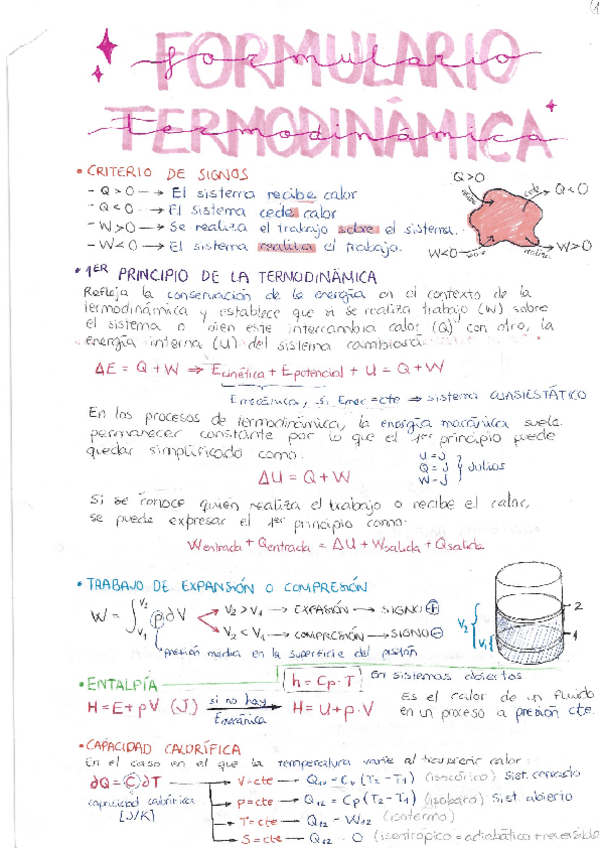 FORMULARIO
formulario
TERMODINÁMICA
termodinámica
• CRITERIO DE SIGNOS
- Q > 0 → El sistema recibe calor
- Q < 0 → El sistema cede calor
- W > 0 → Se realiza el trabajo sobre el sistema.
- W < 0 → El sistema realiza el trabajo.
Q>0
cede Q<0
W<0
W>0
• 1ER PRINCIPIO DE LA TERMODINÁMICA
Refleja la conservación de la energía en el contexto de la
termodinámica y establece que si se realiza trabajo (W) sobre
el sistema o bien este intercambia calor (Q) con otro, la
energía interna (U) del sistema cambiará.
ΔE = Q + W ⇒ Ecinética + Epotencial + U = Q + W
Emecánica, si Emec = cte ⇒ sistema CUASIESTÁTICO
En los procesos de termodinámica, la energía mecánica suele
permanecer constante por lo que el 1er principio puede
quedar simplificado como:
ΔU = Q + W
U = J
Q = J } Julios
W = J
Si se conoce quién realiza el trabajo o recibe el calor,
se puede expresar el 1er principio como:
Wentrada + Qentrada = ΔU + Wsalida + Qsalida
• TRABAJO DE EXPANSIÓN O COMPRESIÓN
W = ∫V1 V2 p ∂V
V2 > V1 → EXPANSIÓN → SIGNO +
V2 < V1 → COMPRESIÓN → SIGNO -
presión media en la superficie del pistón
V2 { V1 {
2
1
• ENTALPÍA
h = Cp · T en sistemas abiertos
H = E + pV (J) si no hay Emecánica → H = U + p · V
Es el calor de un fluido
en un proceso a presión cte.
• CAPACIDAD CALORÍFICA
En el caso en el que la temperatura varíe al transferir calor:
∂Q = C ∂T
capacidad calorífica
[J/K]
V = cte → Q12 = Cv (T2 - T1) (isocórico) Sist. cerrado
p = cte → Q12 = Cp (T2 - T1) (isobaro) Sist. abierto
T = cte → Q12 = W12 (isotermo)
S = cte → Q12 = 0 (isentrópico = adiabático + reversible